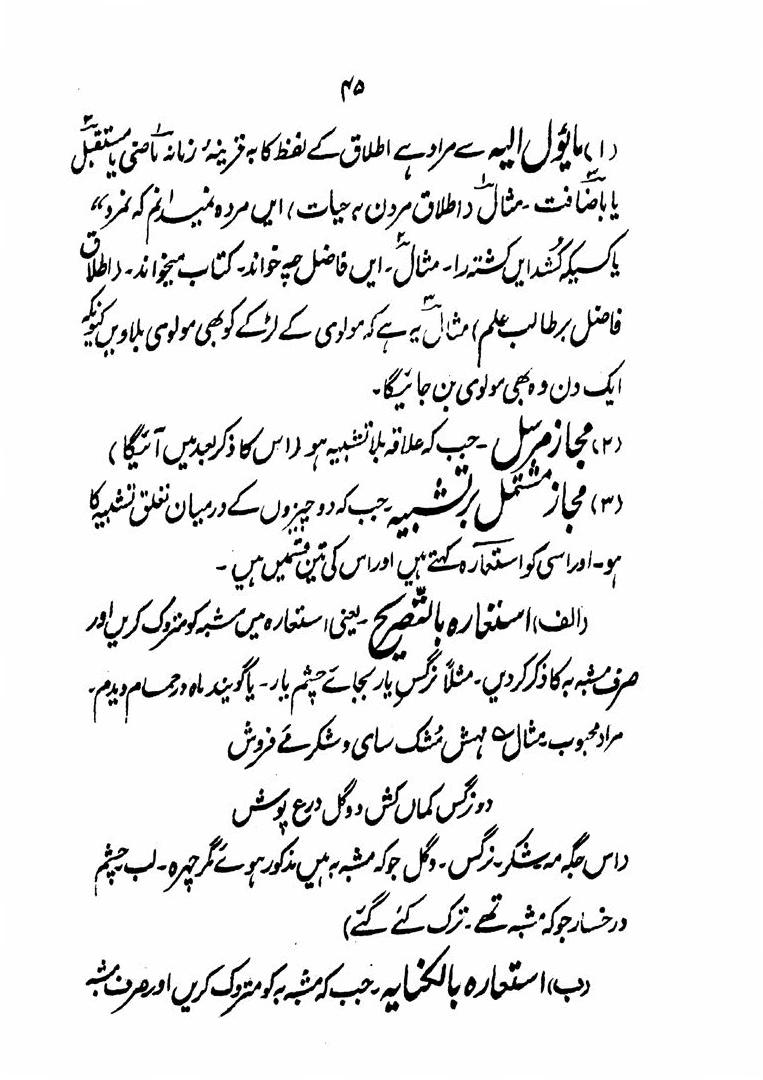 ۴۵
(۱) مایؤل الیہ سے مراد ہے اطلاق کے لفظ کا بہ قرینۂ زمانہ ماضی۱ یا مستقبل۲
یا باضافت۳۔ مثال۱ (اطلاق مردن بہ حیات) ایں مردہ نمیدانم کہ نمرد“
یا کسیکہ کُشد ایں کشتہ را۔ مثال۲۔ ایں فاضل چہ خواند۔ کتاب میخواند۔ (اطلاق
فاضل بر طالب علم) مثال۳ یہ ہے کہ مولوی کے لڑکے کو بھی مولوی بلاویں کیونکہ
ایک دن وہ بھی مولوی بن جائیگا۔
(۲) مجاز مرسل۔ جب کہ علاقہ بلا تشبیہ ہو (اس کا ذکر بعد میں آئیگا)
(۳) مجاز مشتمل بر تشبیہ۔ جب کہ دو چیزوں کے درمیان تعلق تشبیہ کا
ہو۔ اور اسی کو استعارہ کہتے ہیں اور اس کی تین قسمیں ہیں۔
(الف) استعارہ بالتصریح۔ یعنی استعارہ میں مشبہ کو متروک کریں اور
صرف مشبہ بہ کا ذکر کر دیں۔ مثلاً نرگسِ یار بجائے چشم یار۔ یا گویند ماہ در حمام دیدم۔
مراد محبوب۔ مثال ؎ مہش مُشک سای و شکر مے فروش
دو نرگس کماں کش دو گل درع پوش
(اس جگہ مہ۔ شکر۔ نرگس۔ و گل جو کہ مشبہ بہ ہیں مذکور ہوئے مگر چہرہ۔ لب۔ چشم
در خسار جو کہ مشبہ تھے۔ ترک کئے گئے)
(ب) استعارہ بالکنایہ۔ جب کہ مشبہ بہ کو متروک کریں اور صرف مشبہ